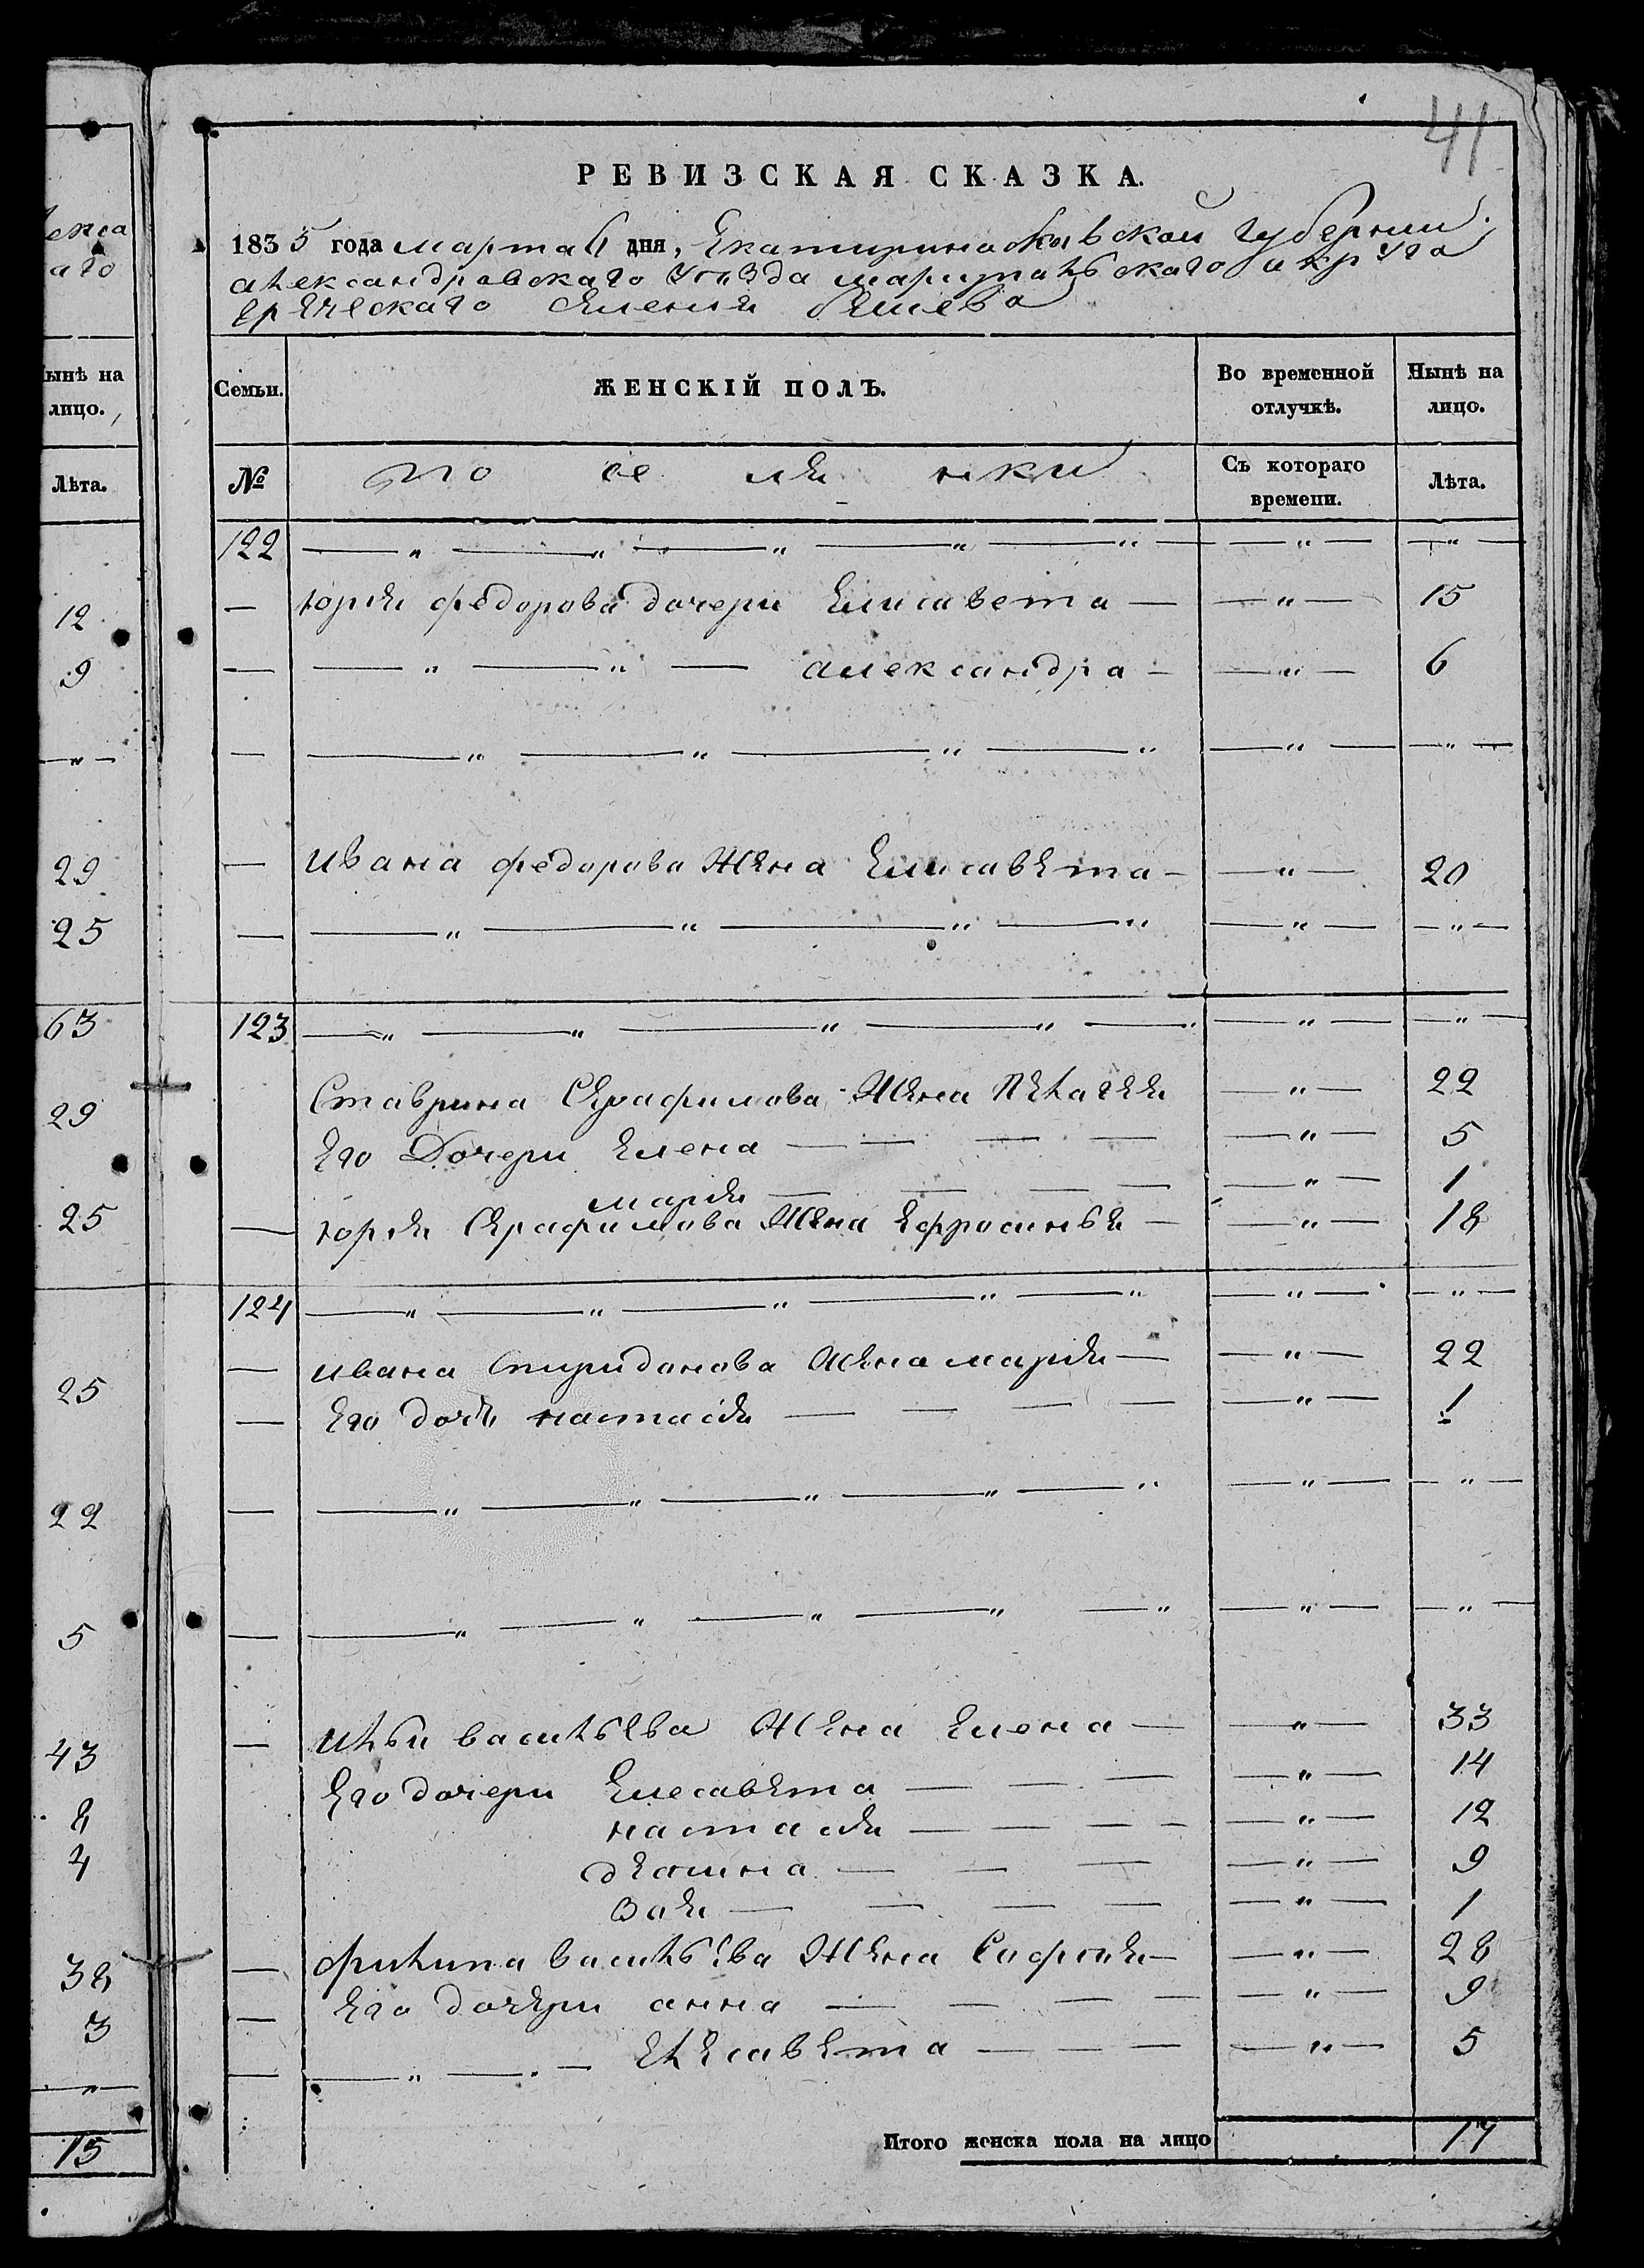 41
РЕВИЗСКАЯ СКАЗКА.
1835 года марта дня, Екатиринославской губернии
александровскаго уѣзда мариупольскаго округа
греческаго селения бешева
Семьи. ЖЕНСКІЙ ПОЛЪ. Во временной отлучкѣ. Нынѣ на лицо.
№ поселянки Съ котораго времени. Лѣта.
122 — „ — „ — „ — „ — „ — — „ — — „ —
— юрия федорова дочери Елисавета — — „ — 15
— — „ — „ — александра — — „ — 6
— — „ — „ — „ — „ — „ — — „ —
— ивана федорова жена Елисавета — — „ — 20
— — „ — „ — „ — „ — „ — — „ —
123 — „ — „ — „ — „ — „ — „ — — „ —
Ставрина Серафимова жена Пелагея — „ — 22
Его Дочери Елена — — — — — „ — 5
мария — — — — — „ — 1
— юрия Серафимова жена Ефросинья — — „ — 18
124 — „ — „ — „ — „ — „ — „ — — „ —
— ивана спиридонова жена мария — — „ — 22
— Его дочь настасия — — — — — „ — 1
— — „ — „ — „ — „ — „ — „ — — „ —
— — „ — „ — „ — „ — „ — „ — — „ —
— ильи васильева жена Елена — — „ — 33
Его дочери Елесавета — — — — „ — 14
настасия — — — — — „ — 12
— — — — „ — 9
Зоя — — — — — „ — 1
— филипа васильева жена София — — „ — 28
— Его дочери анна — — — — — „ — 9
— — „ — „ — Елесавета — — — — „ — 5
Итого женска пола на лицо 17
екса
аго
Нынѣ на
лицо.
Лѣта.
12
9
— „ —
29
25
63
29
25
25
22
5
43
8
4
38
3
— „ —
15